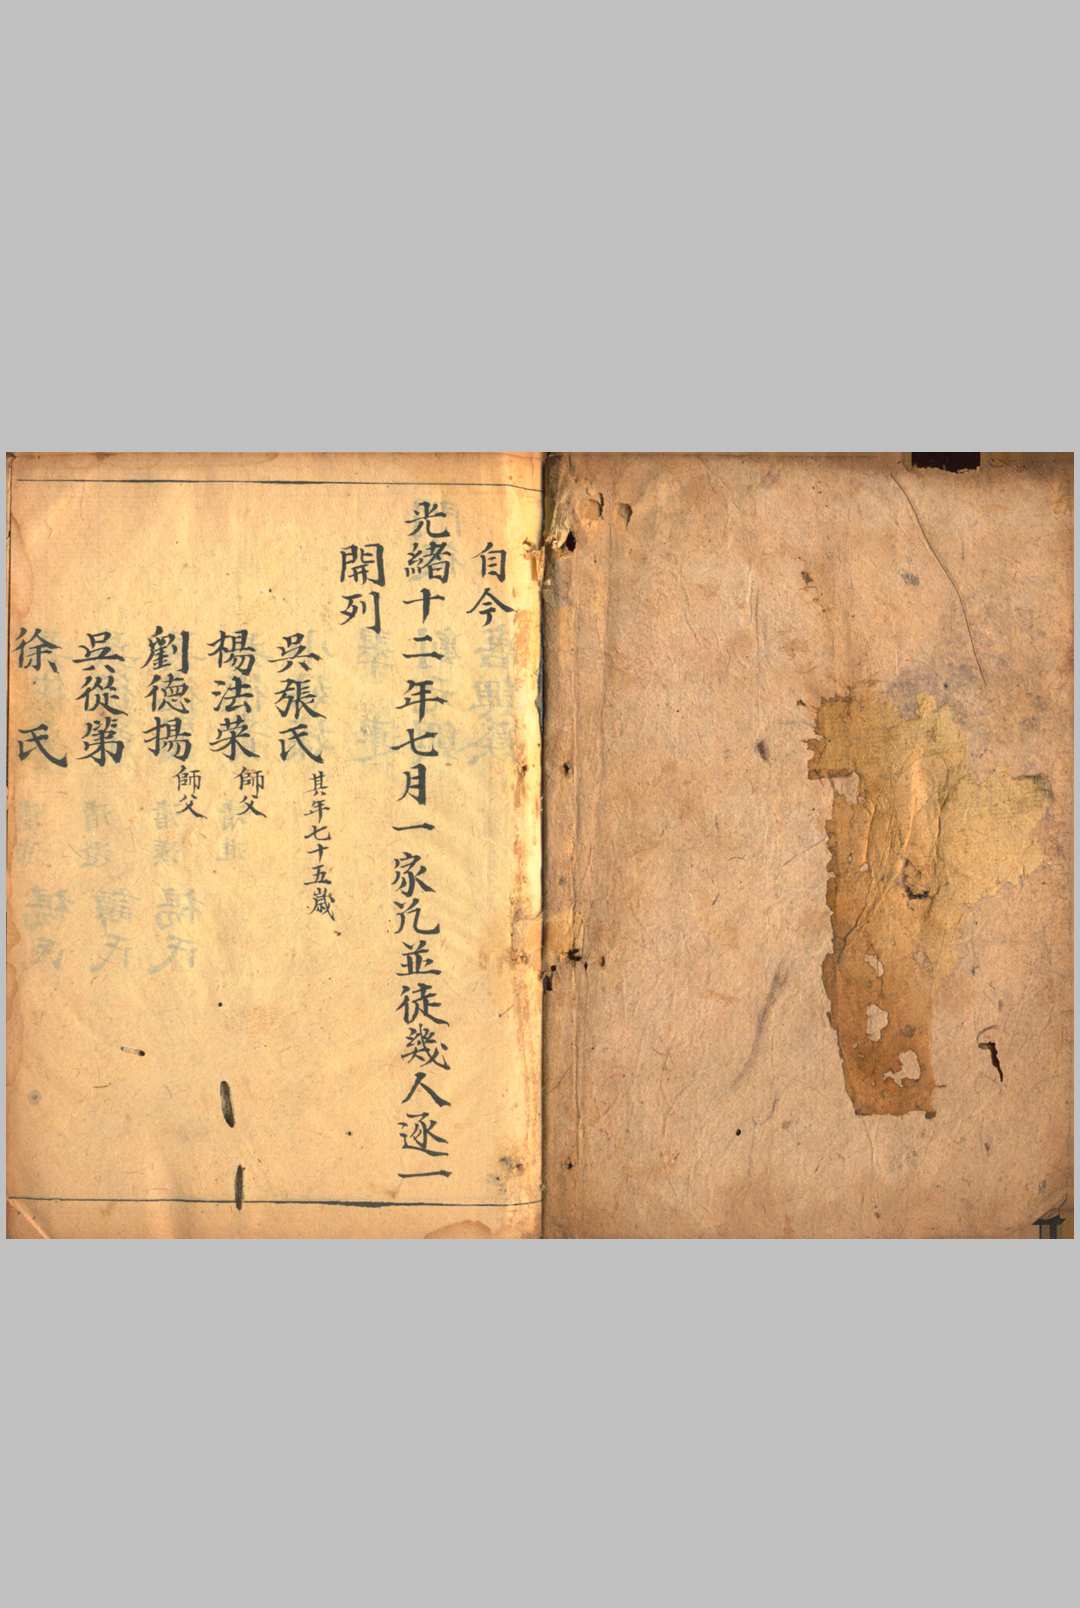 自今
光緒十二年七月一家凣並徒幾人逐一
開列
吳張氏 其年七十五歲
楊法荣 師父
劉德揚 師父
吳從第
徐氏